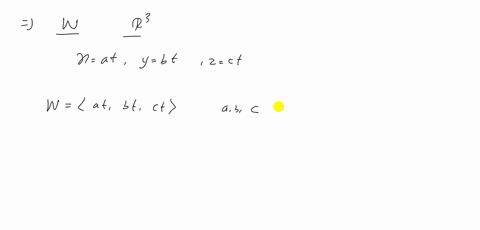 =) W R³
x=at, y=bt, z=ct
W = < at, bt, ct > a, b, c